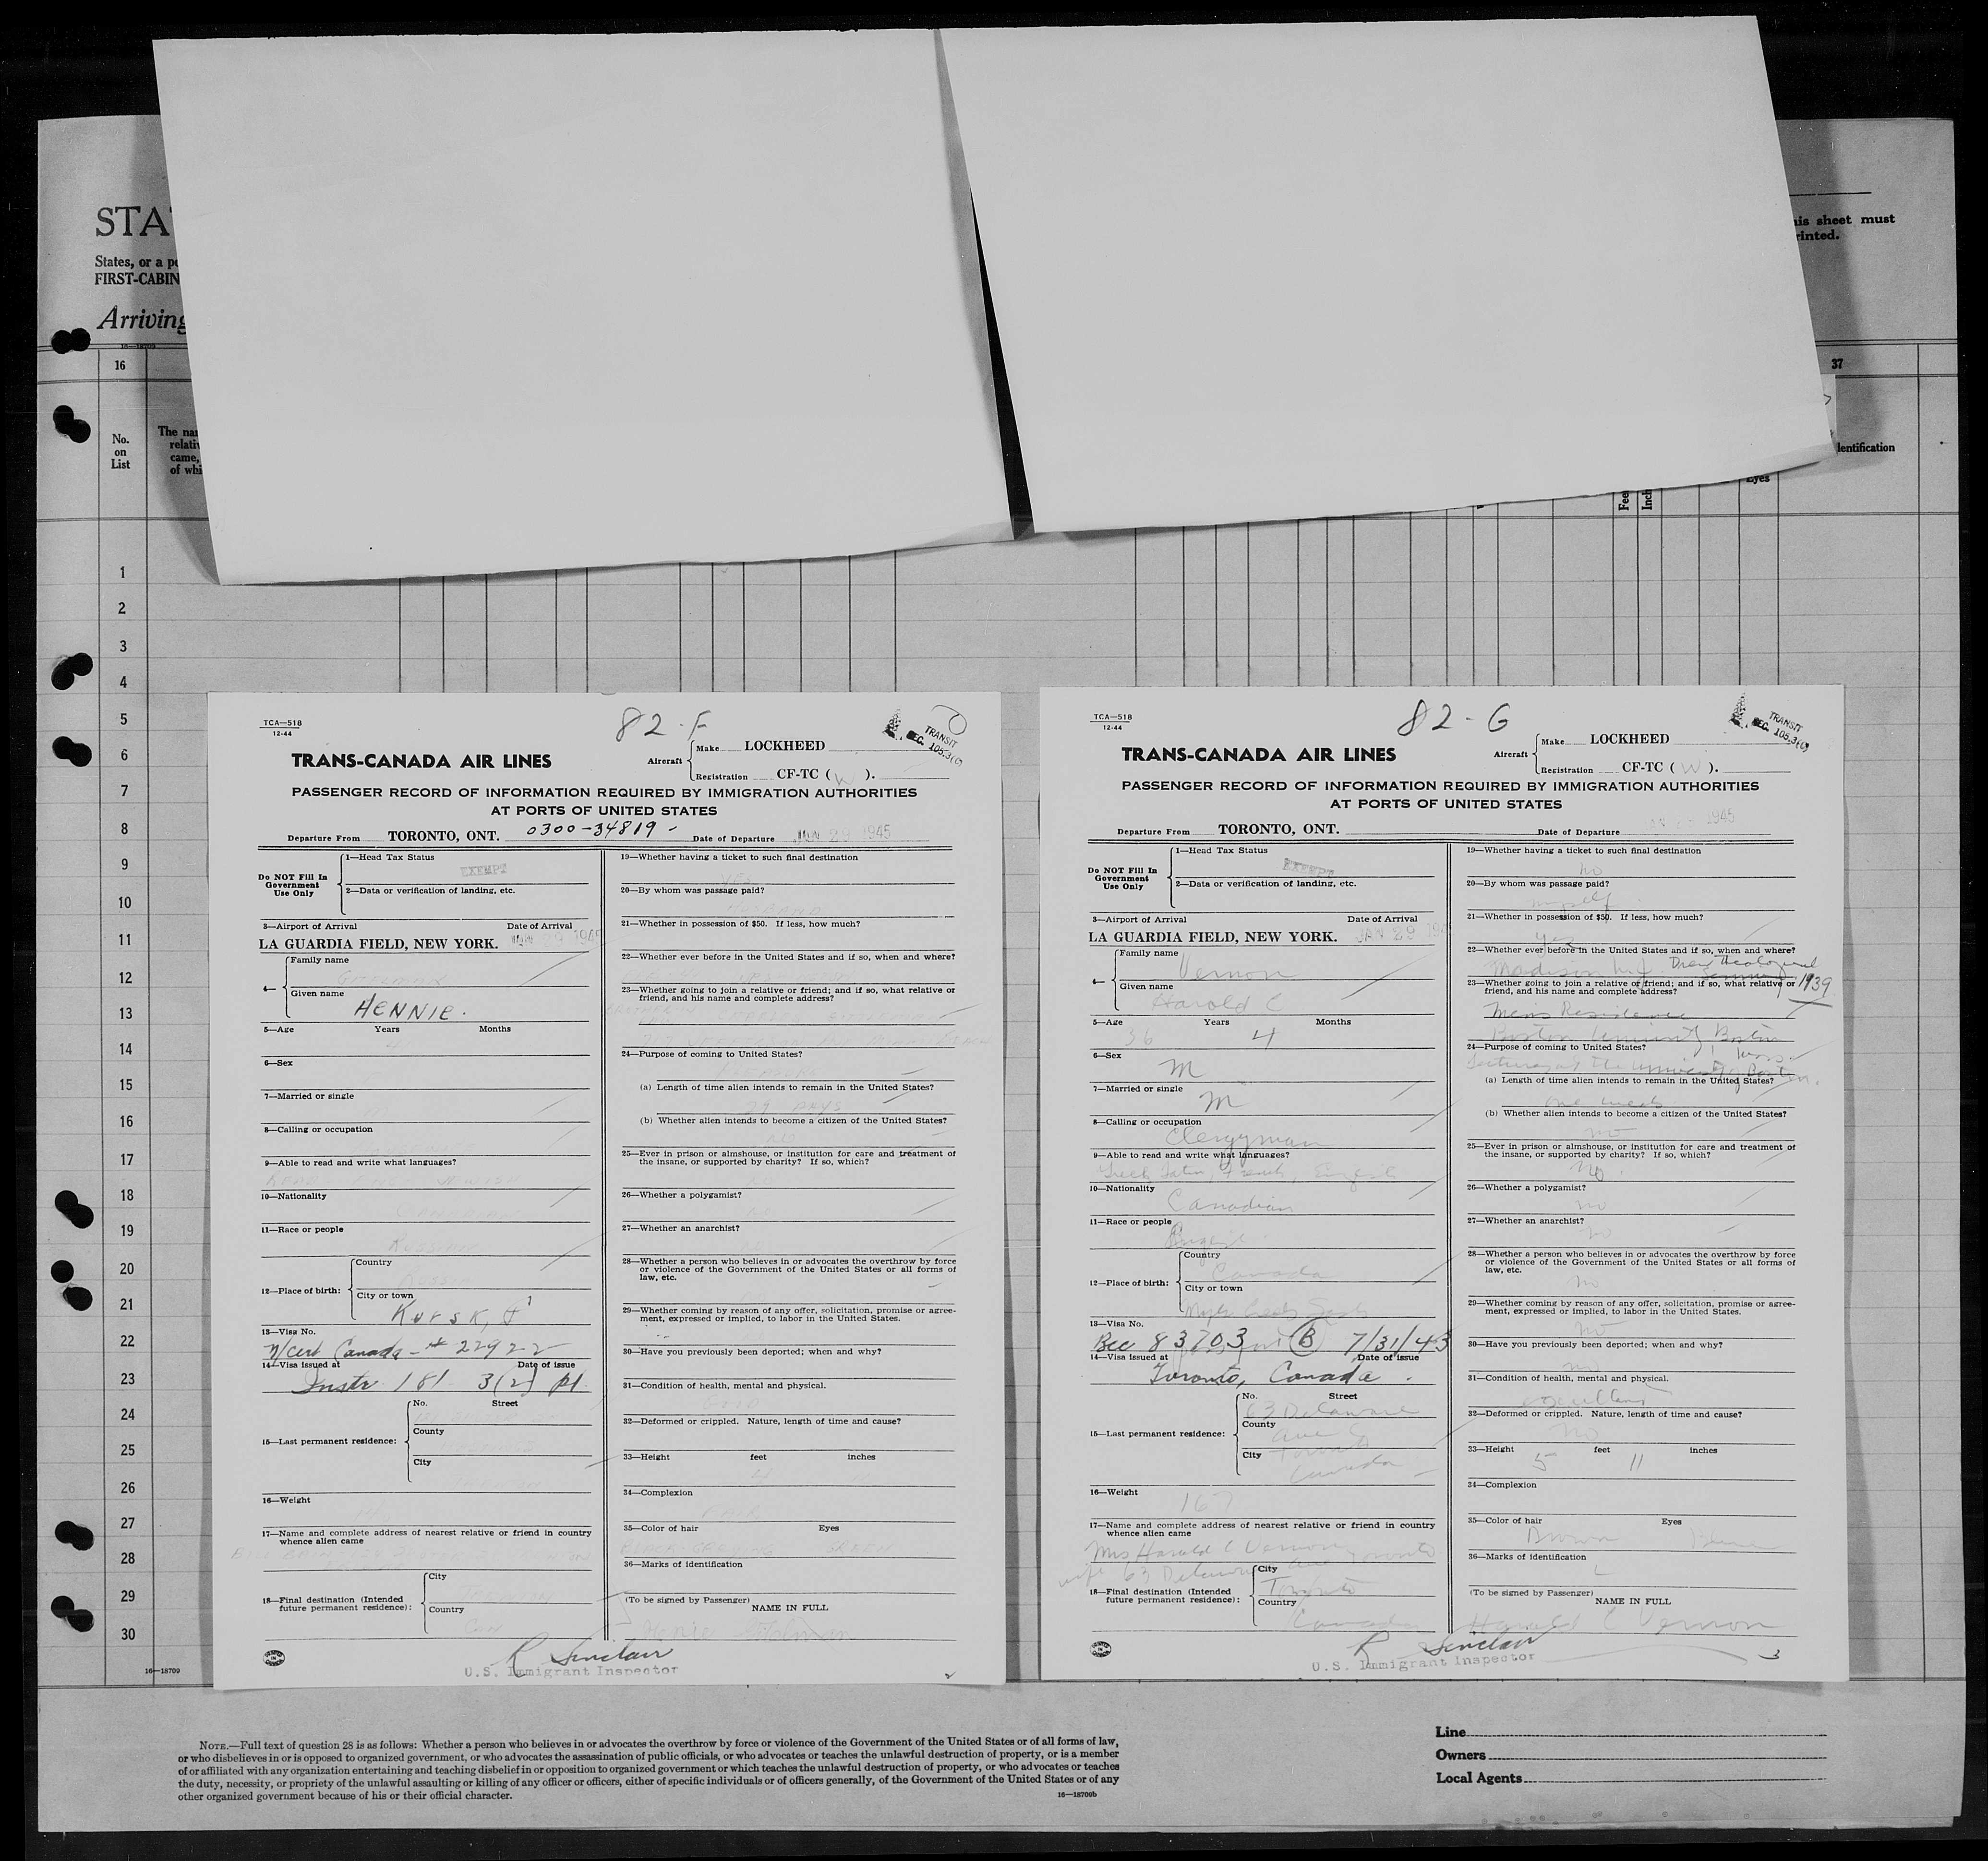 STA
States, or a p
FIRST-CABIN
Arriving
his sheet must
rinted.
16
37
No.
on
List
The na
relati
came,
of whi
lentification
Eyes
Fee
Inch
1
2
3
4
5
6
7
8
9
10
11
12
13
14
15
16
17
18
19
20
21
22
23
24
25
26
27
28
29
30
16—18709
TCA—518
12-44
82-F
TRANSIT
SEC. 105.3(c)
TRANS-CANADA AIR LINES
Aircraft
Make LOCKHEED
Registration CF-TC ( W ).
PASSENGER RECORD OF INFORMATION REQUIRED BY IMMIGRATION AUTHORITIES
AT PORTS OF UNITED STATES
Departure From TORONTO, ONT. 0300-34819 - Date of Departure JAN 29 1945
Do NOT Fill In
Government
Use Only
1—Head Tax Status
EXEMPT
2—Data or verification of landing, etc.
3—Airport of Arrival Date of Arrival
LA GUARDIA FIELD, NEW YORK. JAN 29 194
4—
Family name
Given name
HENNIE.
5—Age Years Months
6—Sex
7—Married or single
8—Calling or occupation
9—Able to read and write what languages?
10—Nationality
11—Race or people
Russian
12—Place of birth:
Country
Russia
City or town
Kursk,
13—Visa No.
N/cert Canada - # 22922
14—Visa issued at Date of issue
Instr. 181 3(2) Pl.
15—Last permanent residence:
No. Street
County
City
16—Weight
17—Name and complete address of nearest relative or friend in country
whence alien came
18—Final destination (Intended
future permanent residence):
City
Country
Can
19—Whether having a ticket to such final destination
YES
20—By whom was passage paid?
HUSBAND
21—Whether in possession of $50. If less, how much?
22—Whether ever before in the United States and if so, when and where?
23—Whether going to join a relative or friend; and if so, what relative or
friend, and his name and complete address?
24—Purpose of coming to United States?
(a) Length of time alien intends to remain in the United States?
29 DAYS
(b) Whether alien intends to become a citizen of the United States?
NO
25—Ever in prison or almshouse, or institution for care and treatment of
the insane, or supported by charity? If so, which?
26—Whether a polygamist?
27—Whether an anarchist?
28—Whether a person who believes in or advocates the overthrow by force
or violence of the Government of the United States or all forms of
law, etc.
29—Whether coming by reason of any offer, solicitation, promise or agree-
ment, expressed or implied, to labor in the United States.
30—Have you previously been deported; when and why?
31—Condition of health, mental and physical.
GOOD
32—Deformed or crippled. Nature, length of time and cause?
33—Height feet inches
34—Complexion
FAIR
35—Color of hair Eyes
36—Marks of identification
(To be signed by Passenger)
NAME IN FULL
R Sinclair
U.S. Immigrant Inspector
2
TCA—518
12-44
82-G
TRANSIT
SEC. 105.3(c)
TRANS-CANADA AIR LINES
Aircraft
Make LOCKHEED
Registration CF-TC ( W ).
PASSENGER RECORD OF INFORMATION REQUIRED BY IMMIGRATION AUTHORITIES
AT PORTS OF UNITED STATES
Departure From TORONTO, ONT. Date of Departure 1945
Do NOT Fill In
Government
Use Only
1—Head Tax Status
EXEMPT
2—Data or verification of landing, etc.
3—Airport of Arrival Date of Arrival
LA GUARDIA FIELD, NEW YORK. JAN 29 194
4—
Family name
Vernon
Given name
Harold C
5—Age Years Months
36 4
6—Sex
M
7—Married or single
M
8—Calling or occupation
Clergyman
9—Able to read and write what languages?
Greek, Latin, French, English
10—Nationality
Canadian
11—Race or people
English
12—Place of birth:
Country
Canada
City or town
13—Visa No.
Bcc 83703 B 7/31/43
14—Visa issued at Date of issue
Toronto, Canada.
15—Last permanent residence:
No. Street
63 Delaware
County
Ave
City Toronto
Canada
16—Weight
167
17—Name and complete address of nearest relative or friend in country
whence alien came
Mrs Harold C Vernon
wife 63 Delaware Ave Toronto
18—Final destination (Intended
future permanent residence):
City
Toronto
Country
Canada
19—Whether having a ticket to such final destination
no
20—By whom was passage paid?
myself
21—Whether in possession of $50. If less, how much?
yes
22—Whether ever before in the United States and if so, when and where?
Madison N.J. Drew Theological
Seminary 1939
23—Whether going to join a relative or friend; and if so, what relative or
friend, and his name and complete address?
Mens Residence
Boston University, Boston
Mass
24—Purpose of coming to United States?
Lecturing at the University of Boston.
(a) Length of time alien intends to remain in the United States?
one week
(b) Whether alien intends to become a citizen of the United States?
no
25—Ever in prison or almshouse, or institution for care and treatment of
the insane, or supported by charity? If so, which?
No.
26—Whether a polygamist?
no
27—Whether an anarchist?
no
28—Whether a person who believes in or advocates the overthrow by force
or violence of the Government of the United States or all forms of
law, etc.
no
29—Whether coming by reason of any offer, solicitation, promise or agree-
ment, expressed or implied, to labor in the United States.
no
30—Have you previously been deported; when and why?
no
31—Condition of health, mental and physical.
excellent
32—Deformed or crippled. Nature, length of time and cause?
no
33—Height feet inches
5 11
34—Complexion
35—Color of hair Eyes
Brown Blue
36—Marks of identification
(To be signed by Passenger)
NAME IN FULL
Harold C Vernon
R Sinclair
U.S. Immigrant Inspector
3
NOTE.—Full text of question 28 is as follows: Whether a person who believes in or advocates the overthrow by force or violence of the Government of the United States or of all forms of law,
or who disbelieves in or is opposed to organized government, or who advocates the assassination of public officials, or who advocates or teaches the unlawful destruction of property, or is a member
of or affiliated with any organization entertaining and teaching disbelief in or opposition to organized government or which teaches the unlawful destruction of property, or who advocates or teaches
the duty, necessity, or propriety of the unlawful assaulting or killing of any officer or officers, either of specific individuals or of officers generally, of the Government of the United States or of any
other organized government because of his or their official character.
16—18709b
Line
Owners
Local Agents